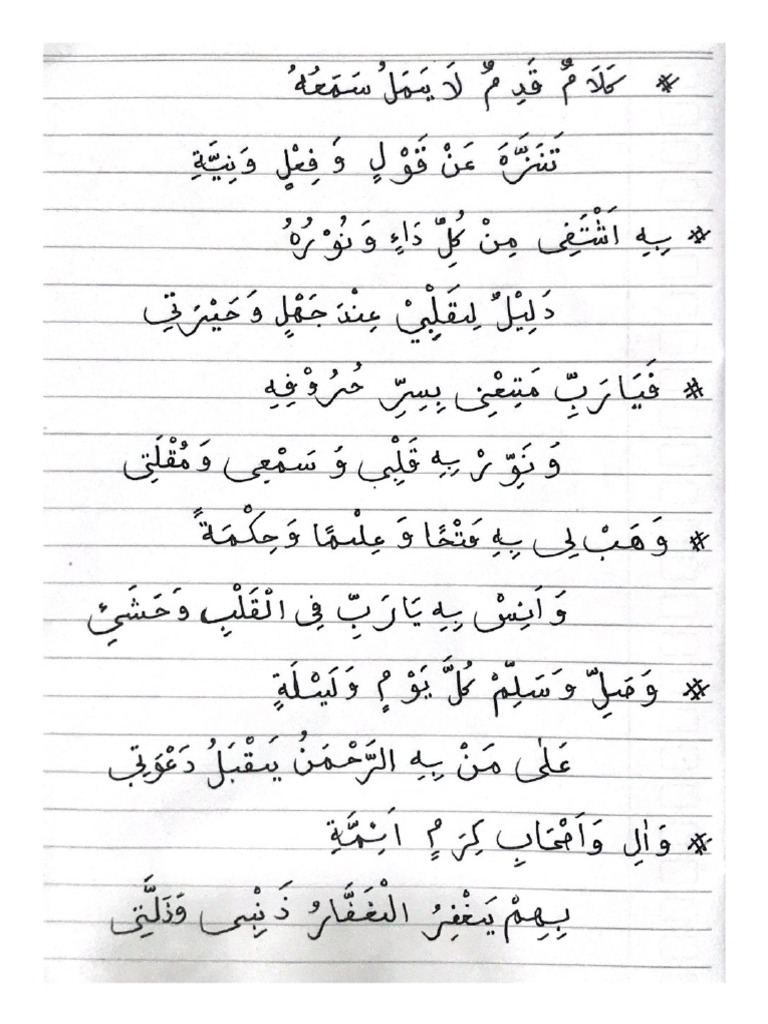 * كَلَامٌ قَدِمٌ لَا يَمَلُ سَمَعُهُ
تَنَزَّهَ عَنْ قَوْلٍ وَ فِعْلٍ وَنِيَّةِ
* بِهِ اَشْتَفِى مِنْ كُلِّ دَاءٍ وَنُوْرُهُ
دَلِيْلٌ لِقَلْبِيْ عِنْدَ جَهْلٍ وَحَيْرَتِي
* فَيَا رَبِّ مَتِعْنِى بِسِرِّ حُرُوْفِهِ
وَنَوِّرْ بِهِ قَلْبِى وَ سَمْعِى وَمُقْلَتِى
* وَهَبْ لِى بِهِ فَتْحًا وَعِلْمًا وَحِكْمَةً
وَ اَنِسْ بِهِ يَا رَبِّ فِى الْقَلْبِ وَحَشَئِ
* وَصَلِّ وَسَلِّمْ كُلَّ يَوْمٍ وَلَيْلَةٍ
عَلٰى مَنْ بِهِ الرَّحْمَنُ يَقْبَلُ دَعْوَتِي
* وَالِ وَاَصْحَابٍ كِرَمٍ اَئِمَّةِ
بِهِمْ يَغْفِرُ الْغَفَّارُ ذَنْبِى وَذَلَّتِى